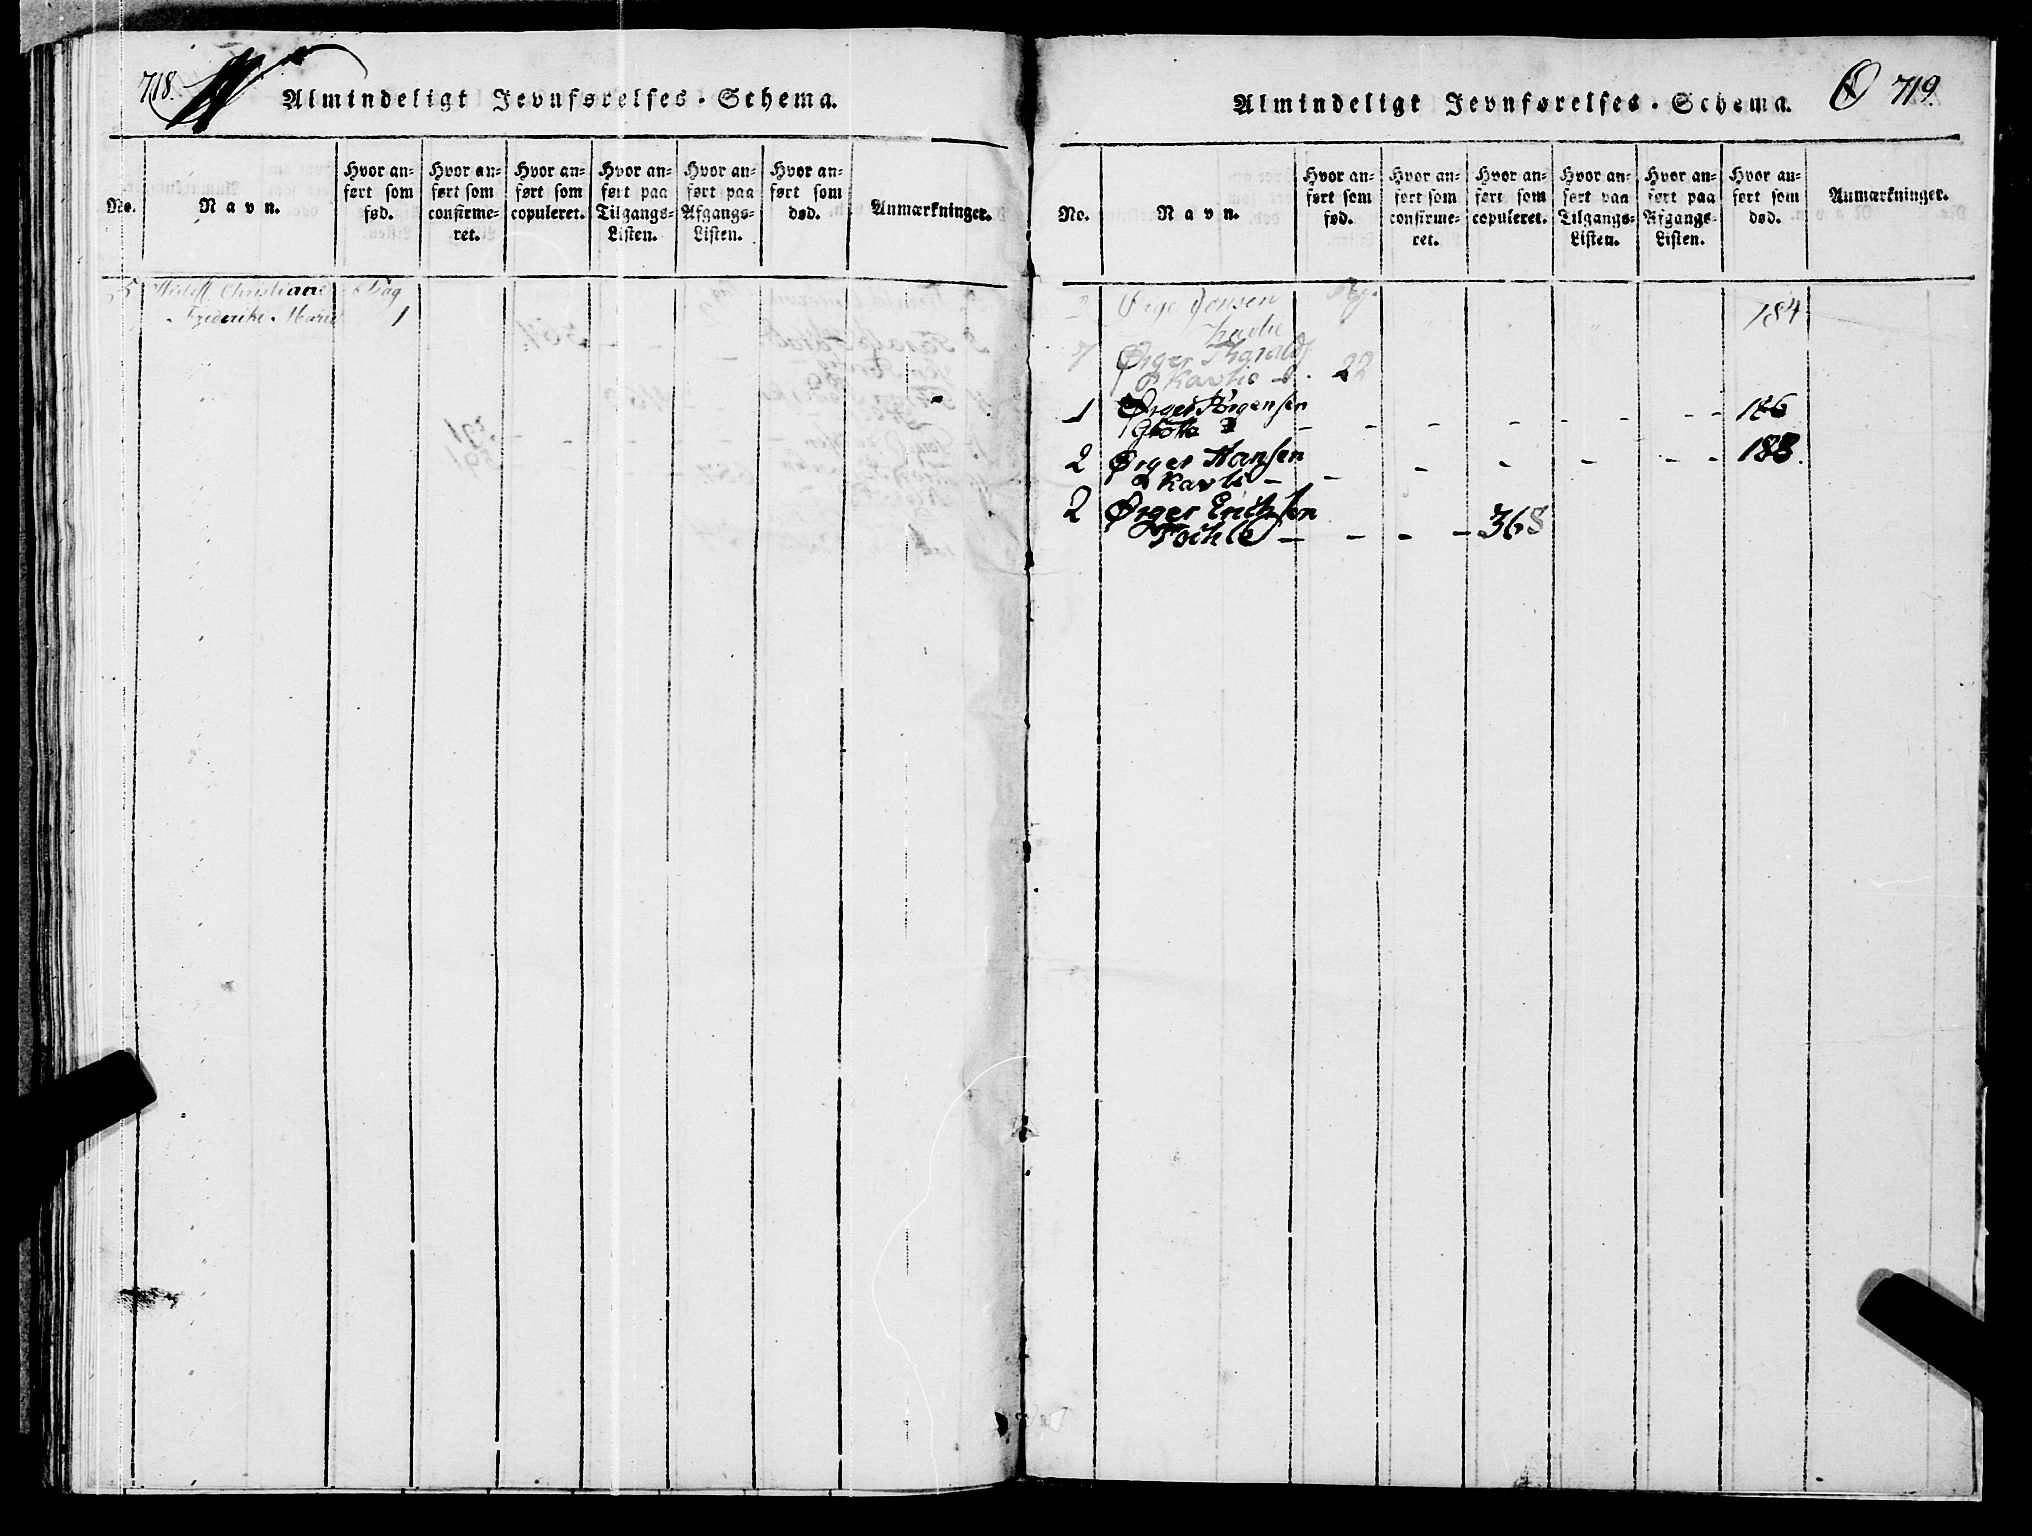 718.
Almindeligt Jevnførelses-Schema.
No.
Navn.
Hvor an-
ført som
fød.
Hvor an-
ført som
confirme-
ret.
Hvor an-
ført som
copuleret.
Hvor an-
ført paa
Tilgangs-
Listen.
Hvor an-
ført paa
Afgangs-
Listen.
Hvor an-
ført som
død.
Anmærkninger.
5 Christiane Pag
Frederike Marie 1
Almindeligt Jevnførelses-Schema.
Ø 719.
No.
Navn.
Hvor an-
ført som
fød.
Hvor an-
ført som
confirme-
ret.
Hvor an-
ført som
copuleret.
Hvor an-
ført paa
Tilgangs-
Listen.
Hvor an-
ført paa
Afgangs-
Listen.
Hvor an-
ført som
død.
Anmærkninger.
2 Jensen Pag. 184
Ørger 22
1 Ørger Jörgensen - - - - - - 186
2 Ørger Hansen - - - - - 188.
2 Ørger Erichsen
- - - - 368